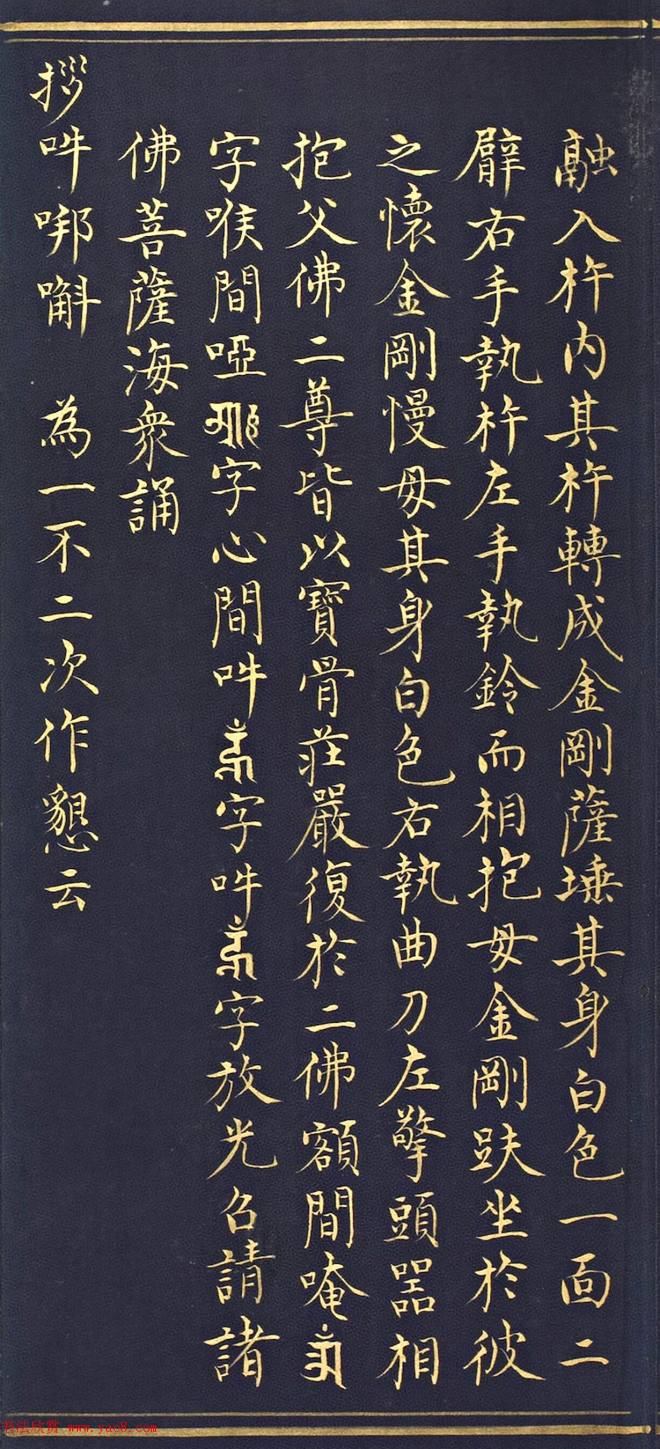 融入杵内其杵轉成金剛薩埵其身白色一面二
臂右手執杵左手執鈴而相抱毋金剛趺坐於彼
之懷金剛慢毋其身白色右執曲刀左擎頭器相
抱父佛二尊皆以寶骨莊嚴復於二佛額間唵ༀ
字喉間啞字心間吽字吽字放光召請諸
佛菩薩海衆誦
拶吽㖮嚼 為一不二次作懇云
书法欣赏 www.yac8.com